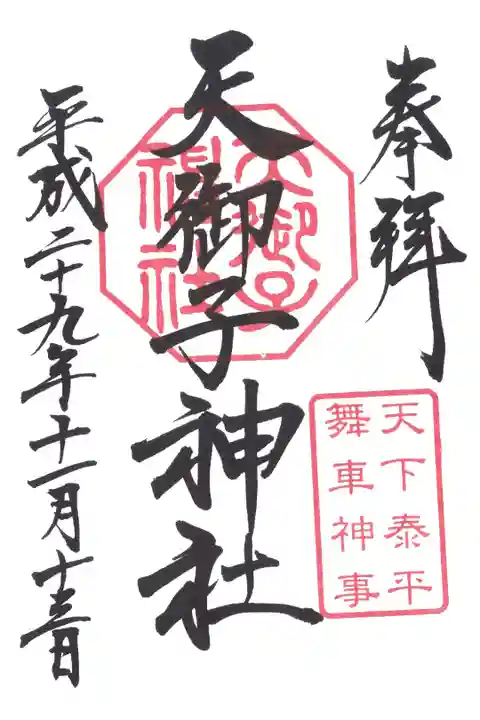 奉拝
天下泰平
舞車神事
天御子神社
天御子
神社
平成二十九年十一月十日